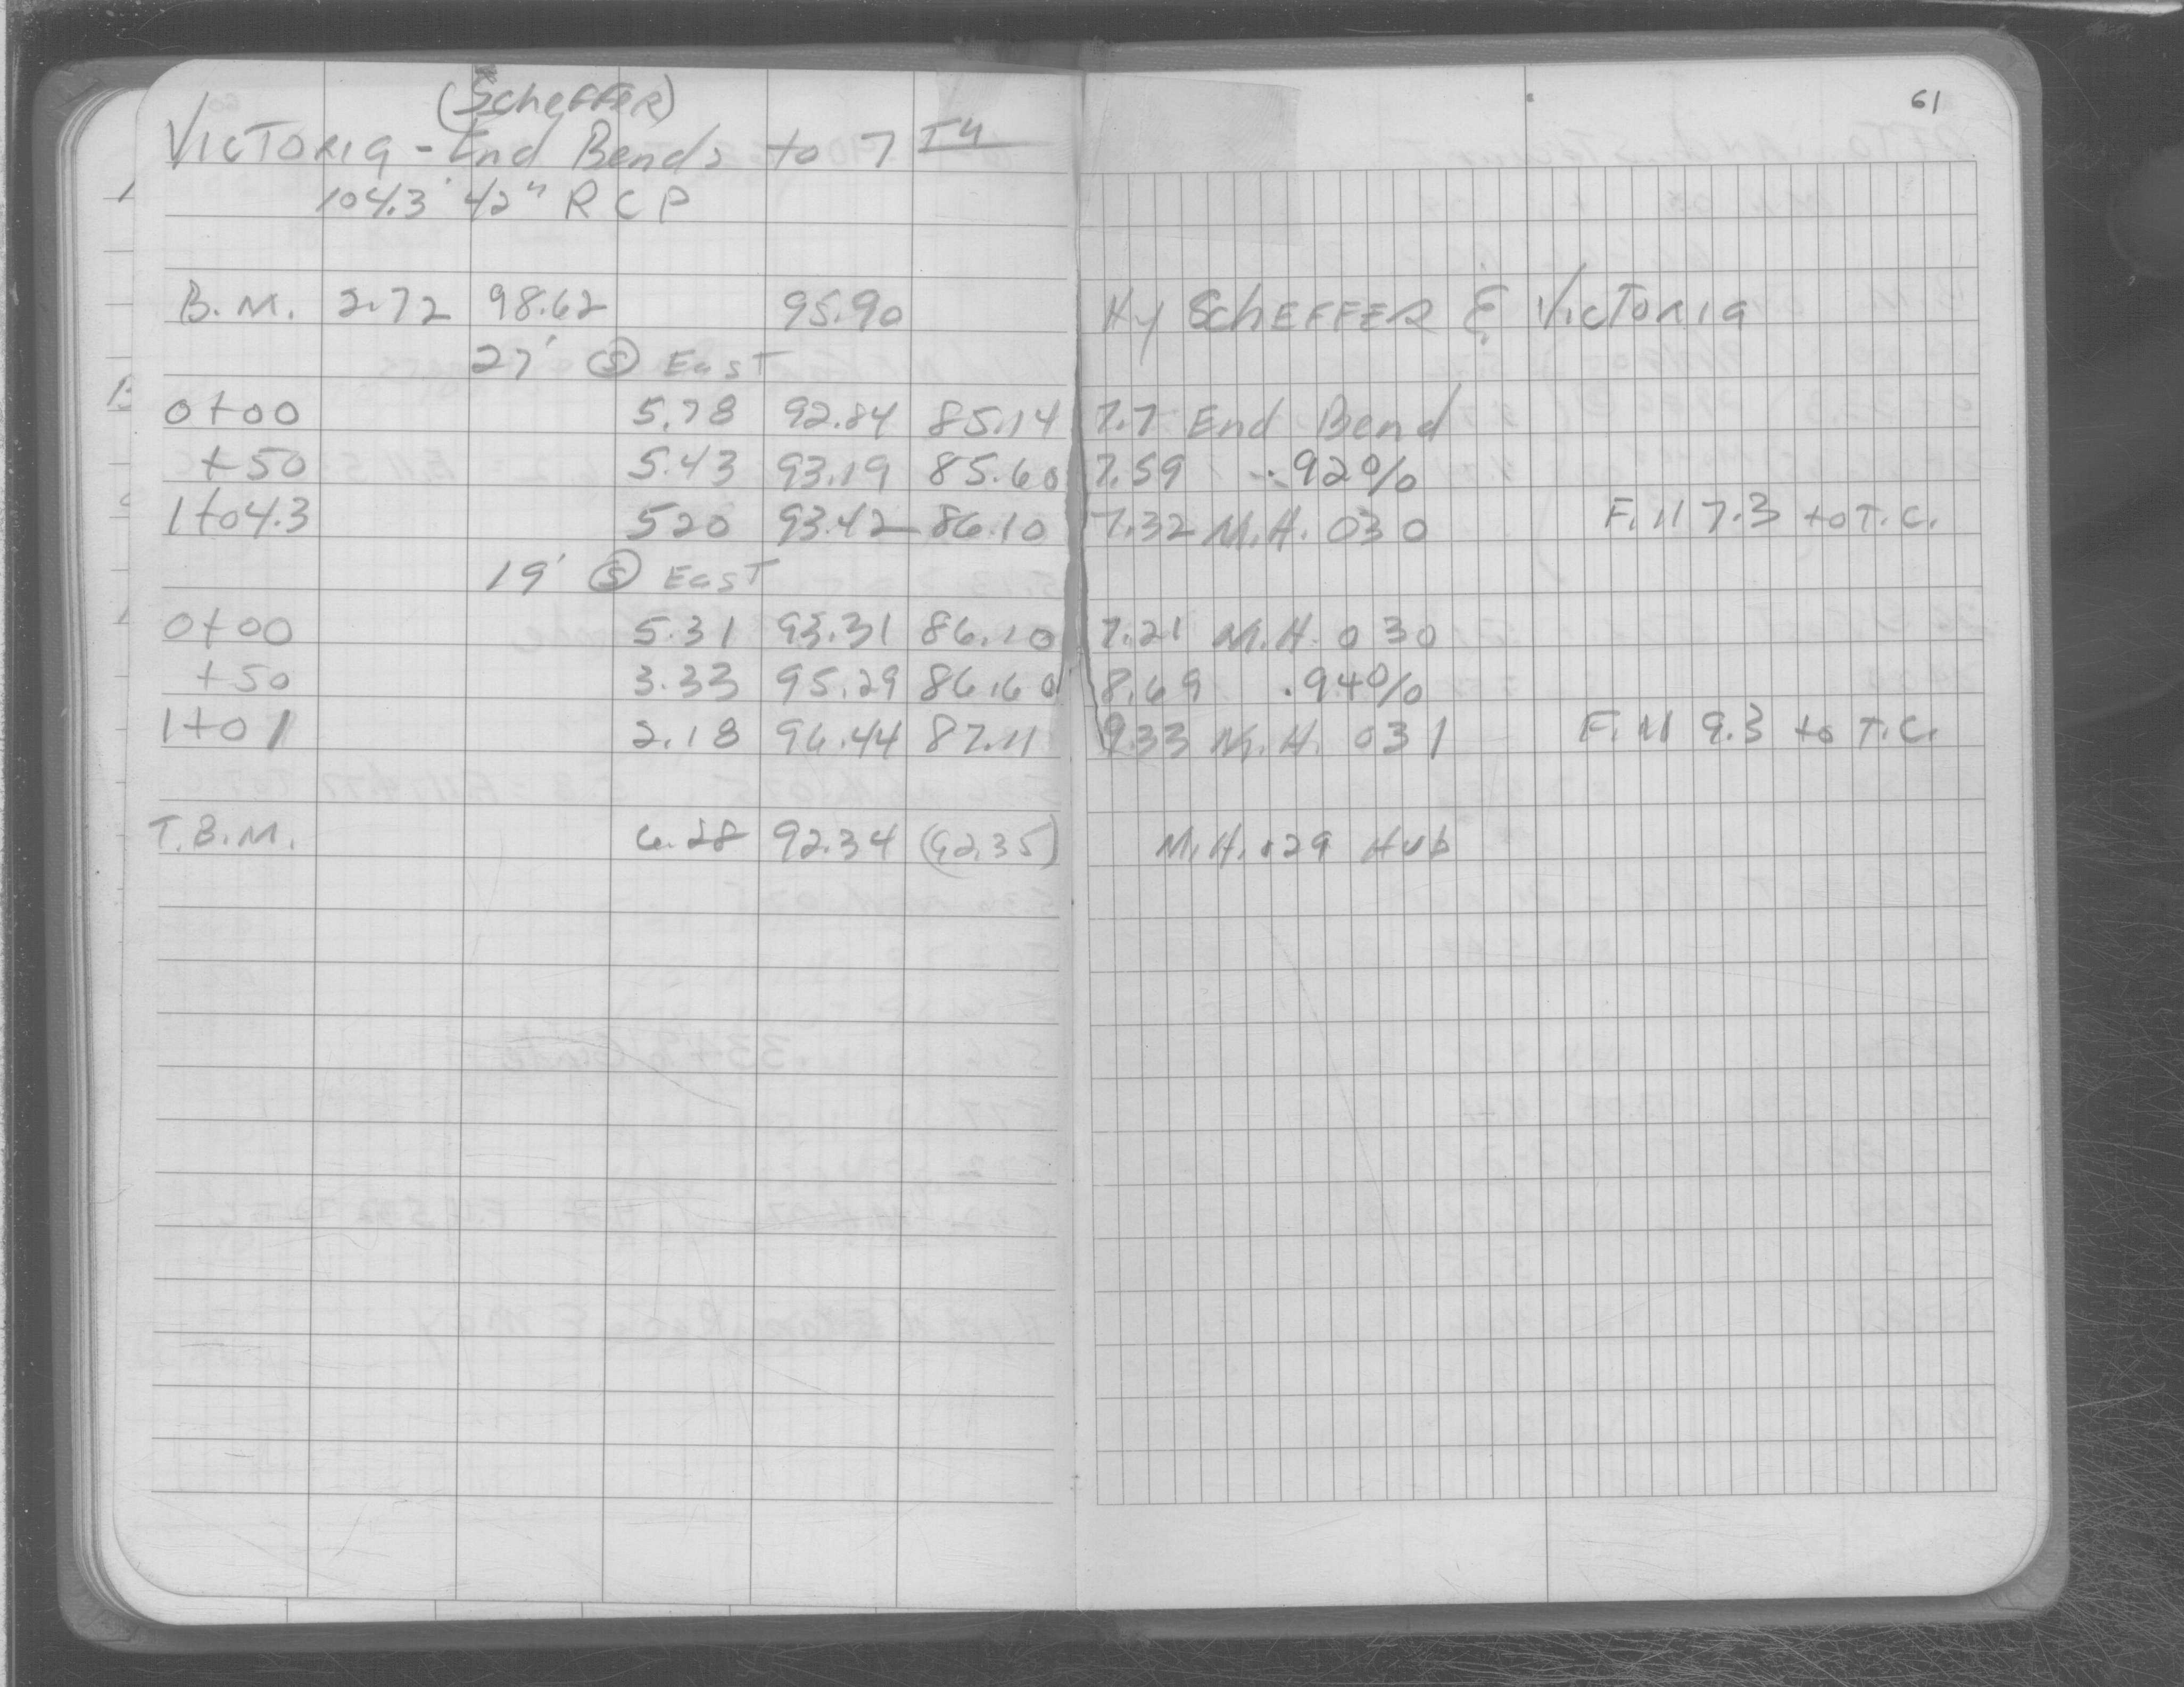 61
(Scheffer)
Victoria - End Bends to 7TH
104.3' 42" RCP
B.M. 2.72 98.62 95.90 Hy Scheffer & Victoria
27' Ⓢ East
0+00 5.78 92.84 85.14 7.7 End Bend
+50 5.43 93.19 85.60 7.59 .92%
1+04.3 520 93.42 86.10 7.32 M.H. 030 Fill 7.3 to T.C.
19' Ⓢ East
0+00 5.31 93.31 86.10 7.21 M.H. 030
+50 3.33 95.29 86.60 8.69 .94%
1+01 2.18 96.44 87.11 9.33 M.H. 031 Fill 9.3 to T.C.
T.B.M. 6.28 92.34 (92.35) M.H. 029 Hub